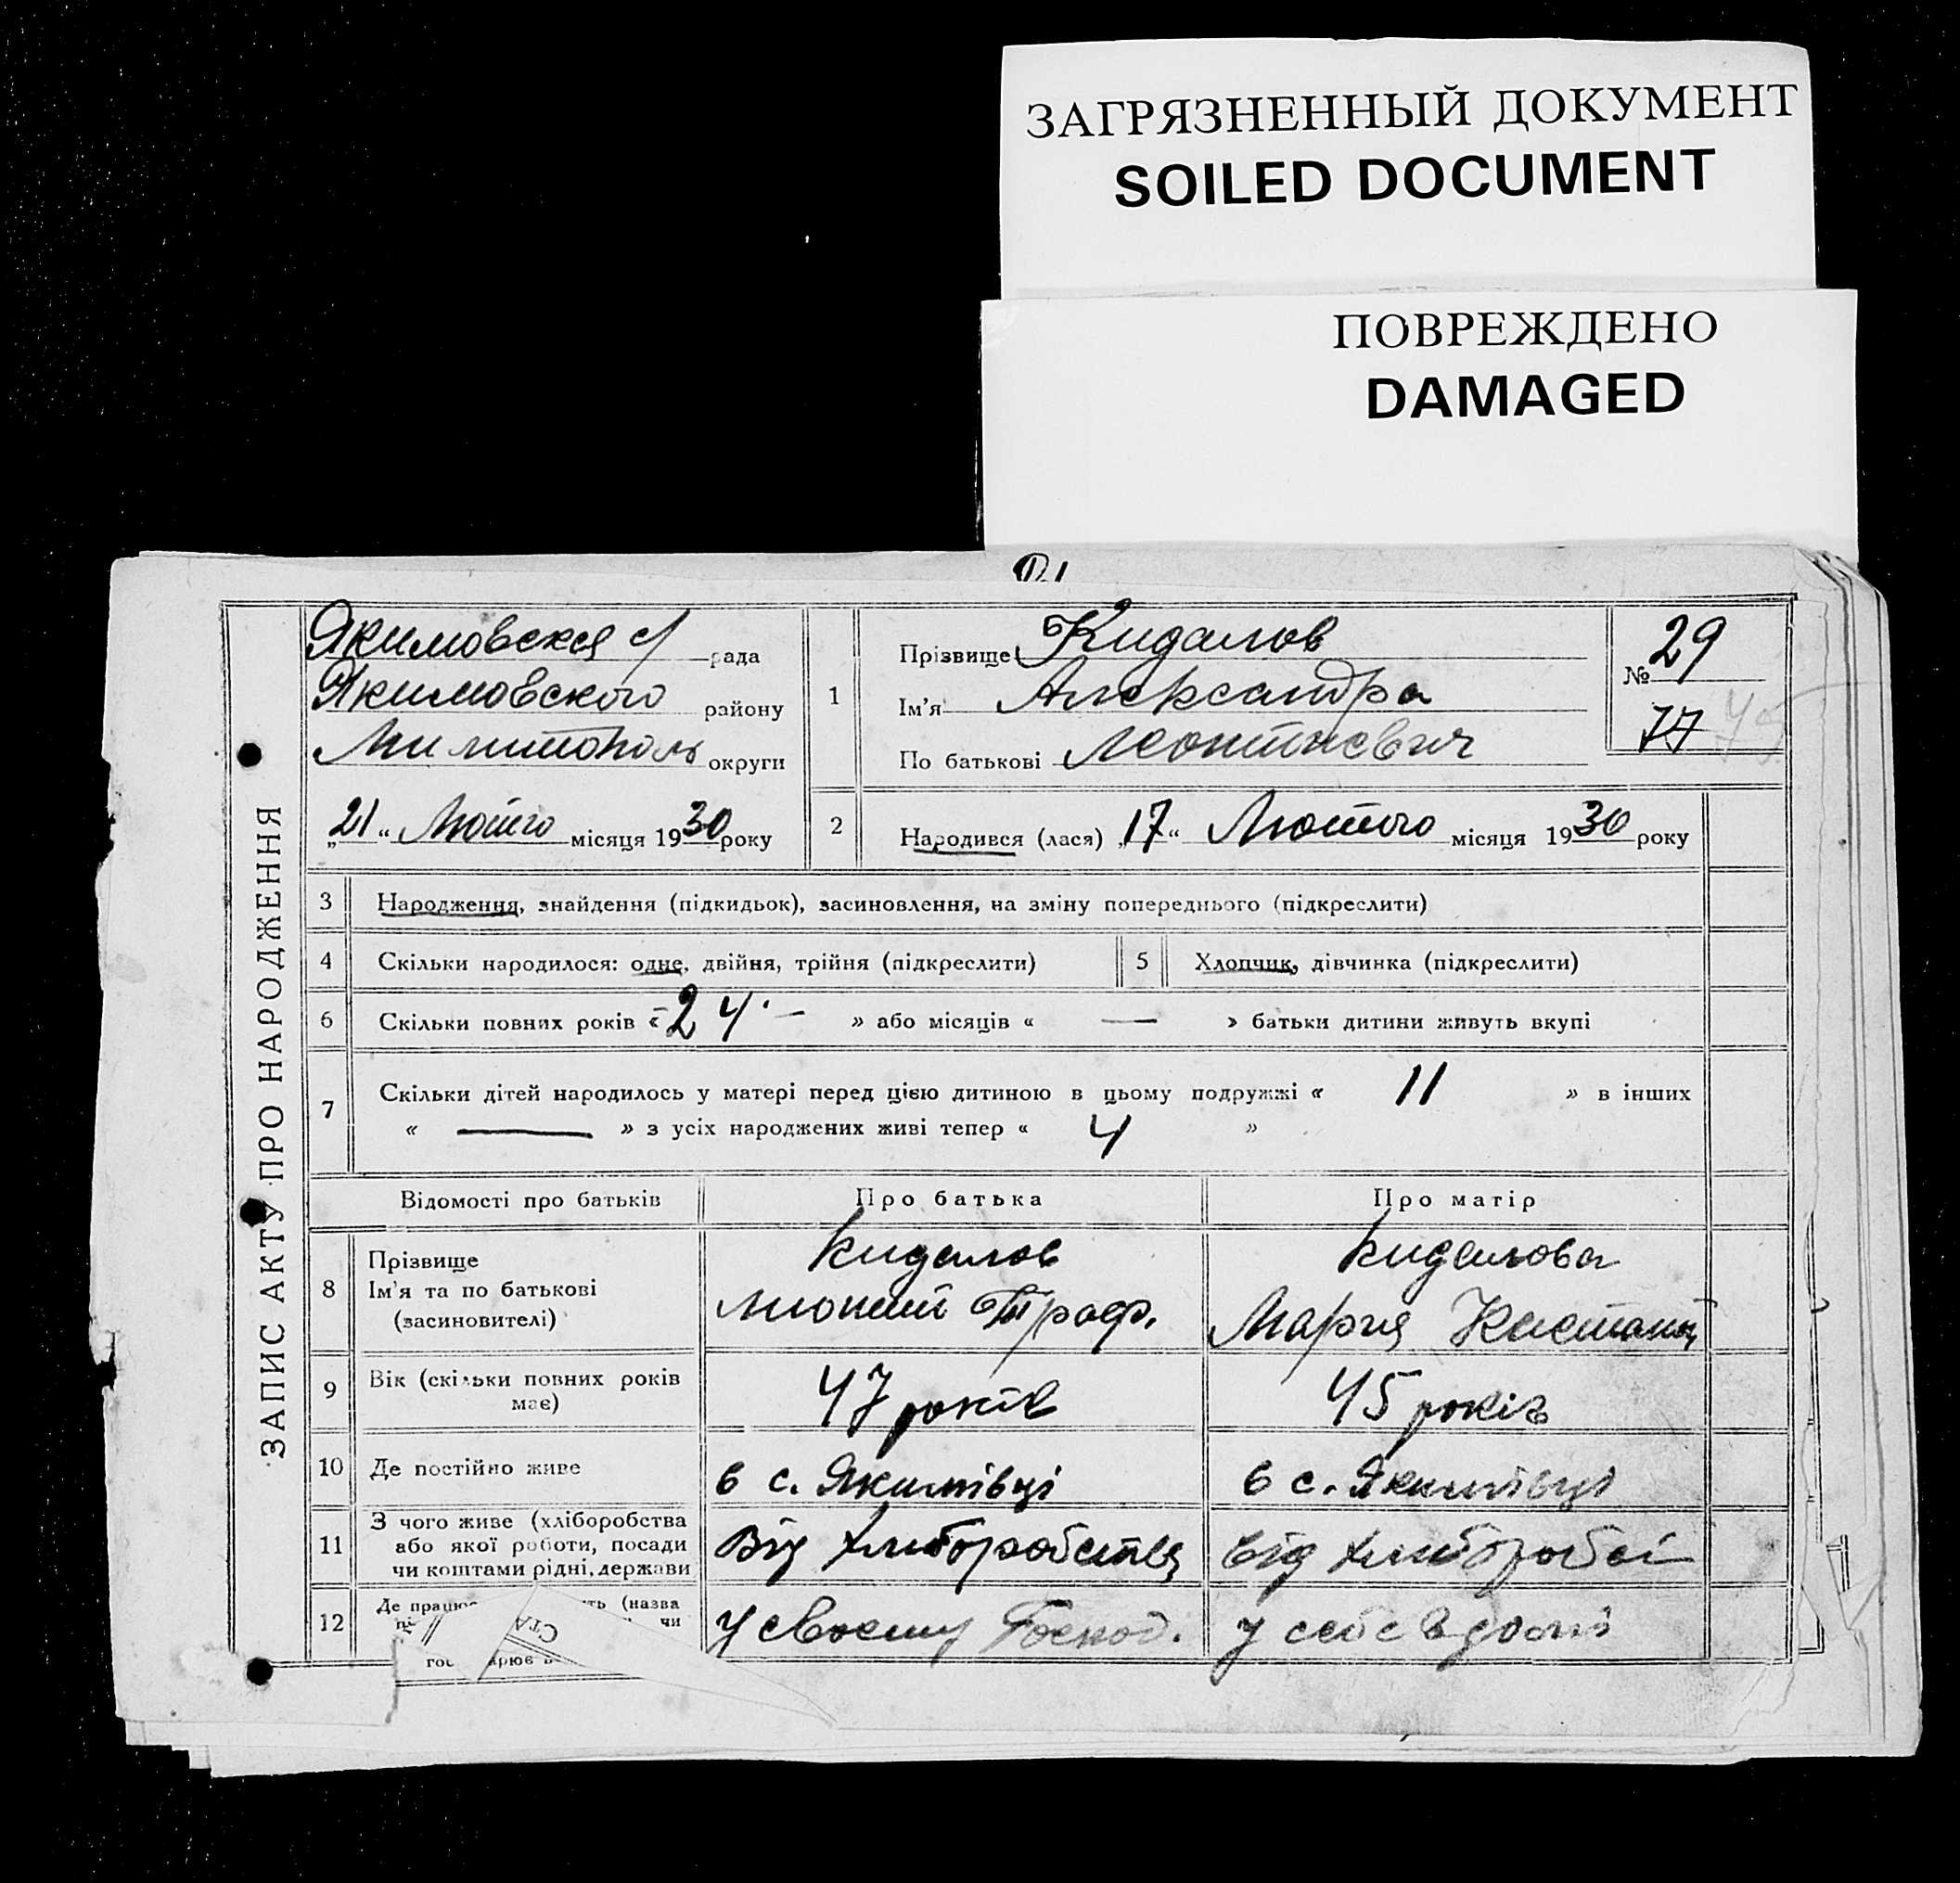 ЗАГРЯЗНЕННЫЙ ДОКУМЕНТ
SOILED DOCUMENT
ПОВРЕЖДЕНО
DAMAGED
ЗАПИС АКТУ ПРО НАРОДЖЕННЯ
Якимовская с/ рада
Якимовского району
Милитополь округи
„21“ Лютого місяця 1930 року
1
Прізвище Кидалов
Ім'я Александра
По батькові Леонтиевич
№ 29
77
2
Народився (лася) „17“ Лютого місяця 1930 року
3 Народження, знайдення (підкидьок), засиновлення, на зміну попереднього (підкреслити)
4 Скільки народилося: одне, двійня, трійня (підкреслити)
5 Хлопчик, дівчинка (підкреслити)
6 Скільки повних років « 24 — » або місяців « — » батьки дитини живуть вкупі
7 Скільки дітей народилось у матері перед цією дитиною в цьому подружжі « 11 » в інших
« — » з усіх народжених живі тепер « 4 »
Відомості про батьків Про батька Про матір
8
Прізвище
Ім'я та по батькові
(засновителі)
Кидалов
Траф.
Кидалова
Мария
9 Вік (скільки повних років
має)
47 років
45 років
10 Де постійно живе
в с. Якимівці
в с. Якимівці
11
З чого живе (хліборобства
або якої роботи, посади
чи коштами рідні, держави
Від хлиборобства
від хлиборобсі
12
Де працює (назва
чи
СТА
У своему Господ.
у себе в домі